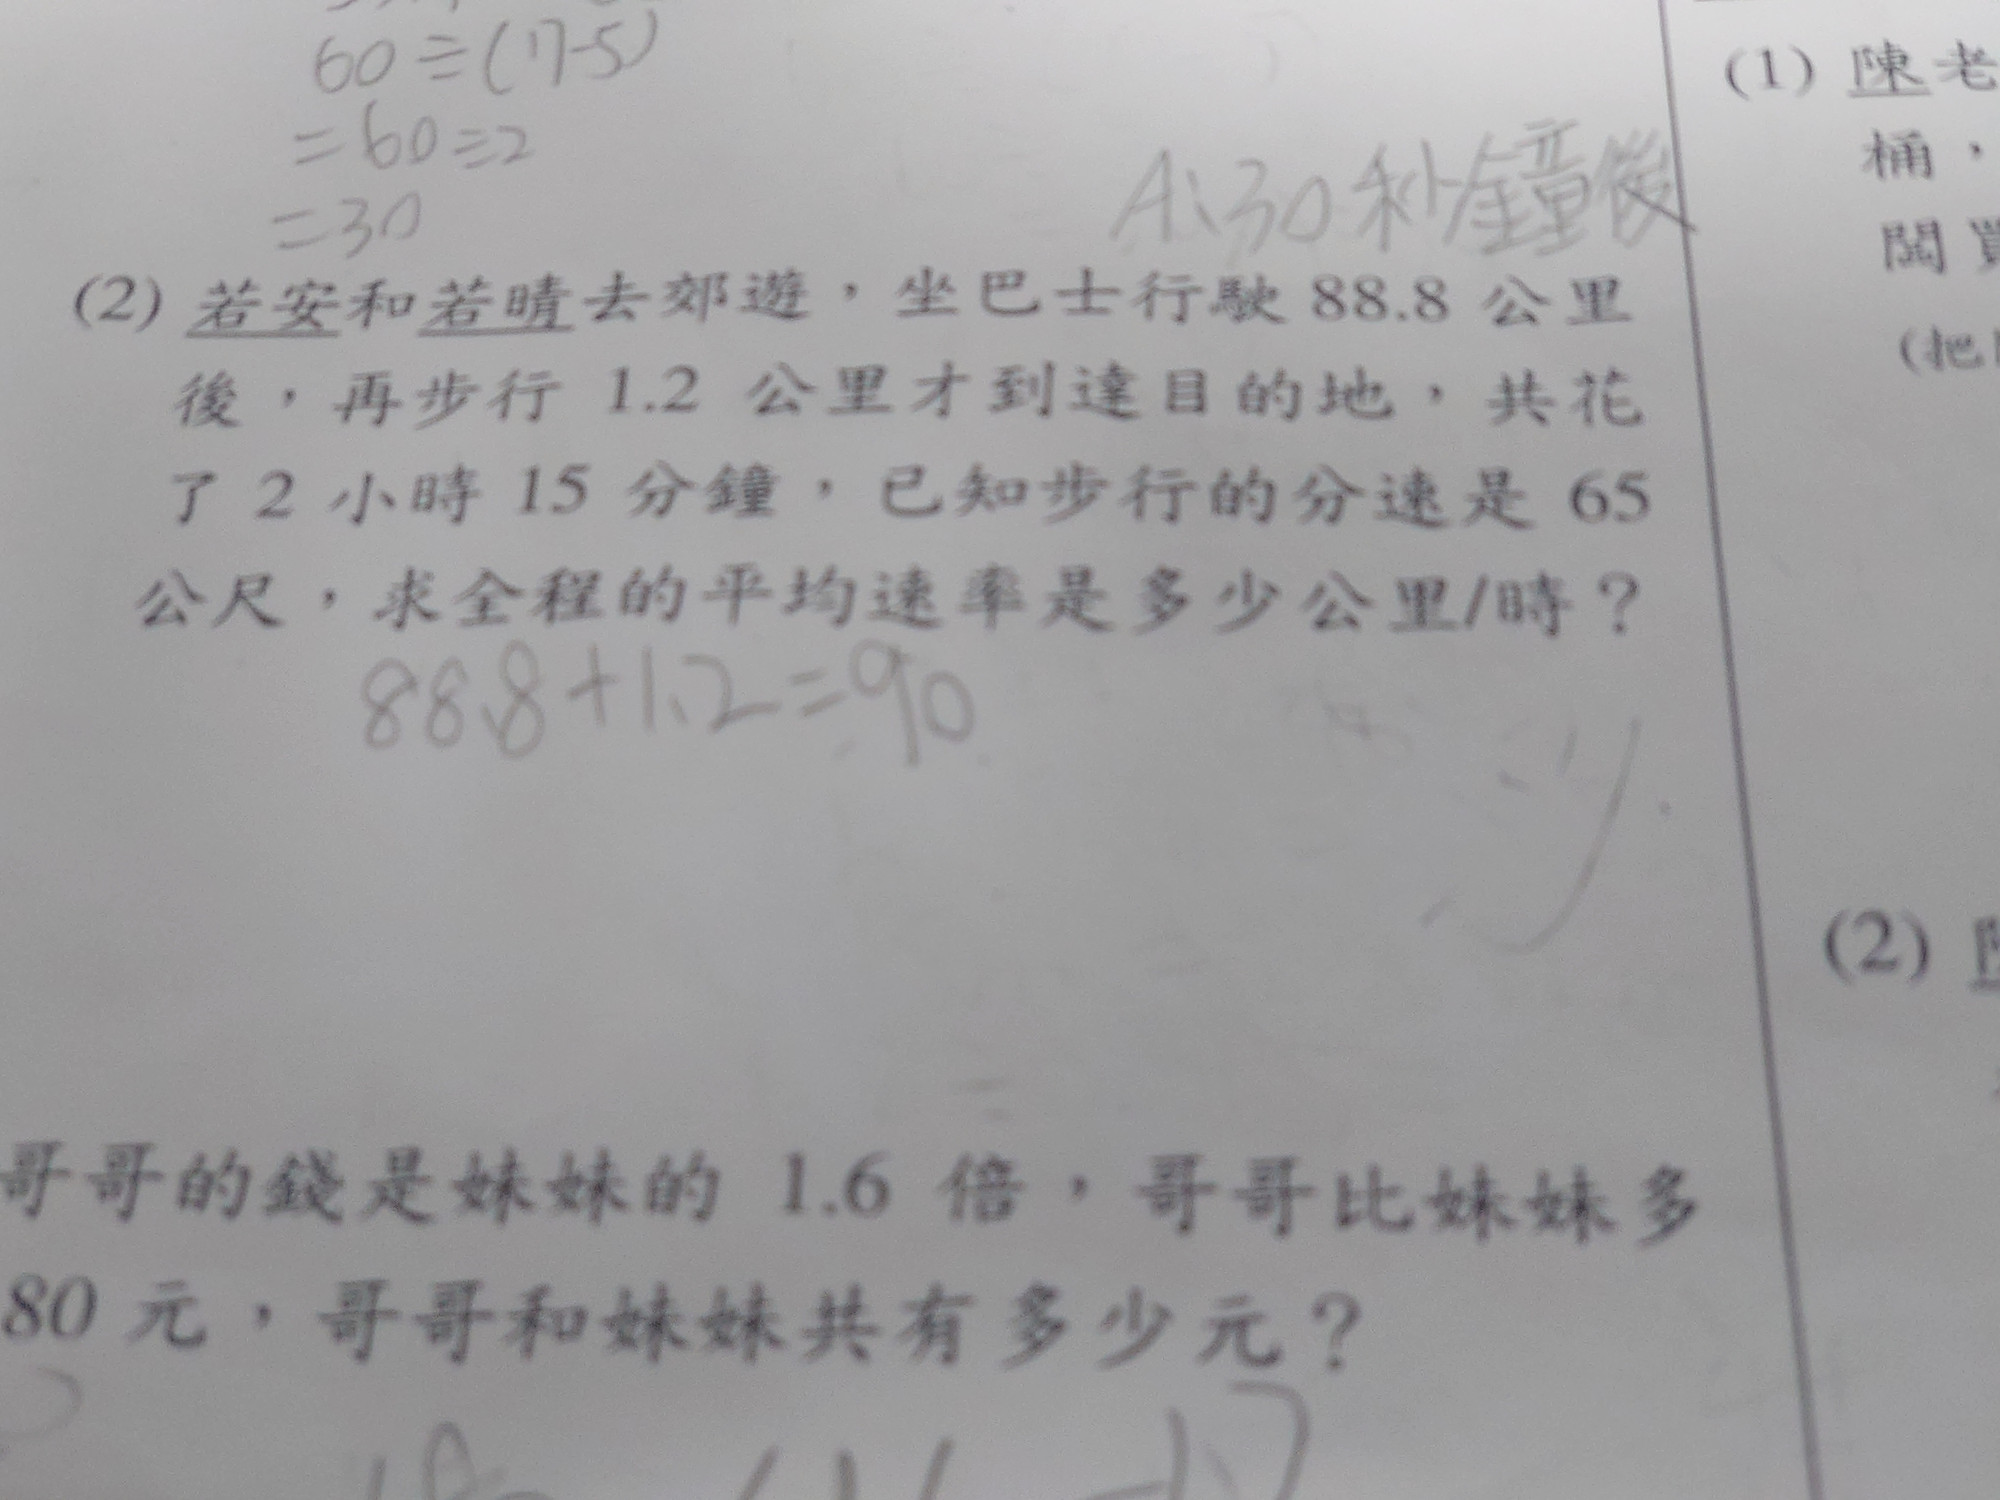 60÷(17-5)
=60÷2
=30
A:30秒鐘後
(2) 若安和若晴去郊遊，坐巴士行駛 88.8 公里
後，再步行 1.2 公里才到達目的地，共花
了 2 小時 15 分鐘，已知步行的分速是 65
公尺，求全程的平均速率是多少公里/時？
88.8+1.2=90
哥哥的錢是妹妹的 1.6 倍，哥哥比妹妹多
80 元，哥哥和妹妹共有多少元？
(1) 陳老
桶，
闆買
(把
(2)